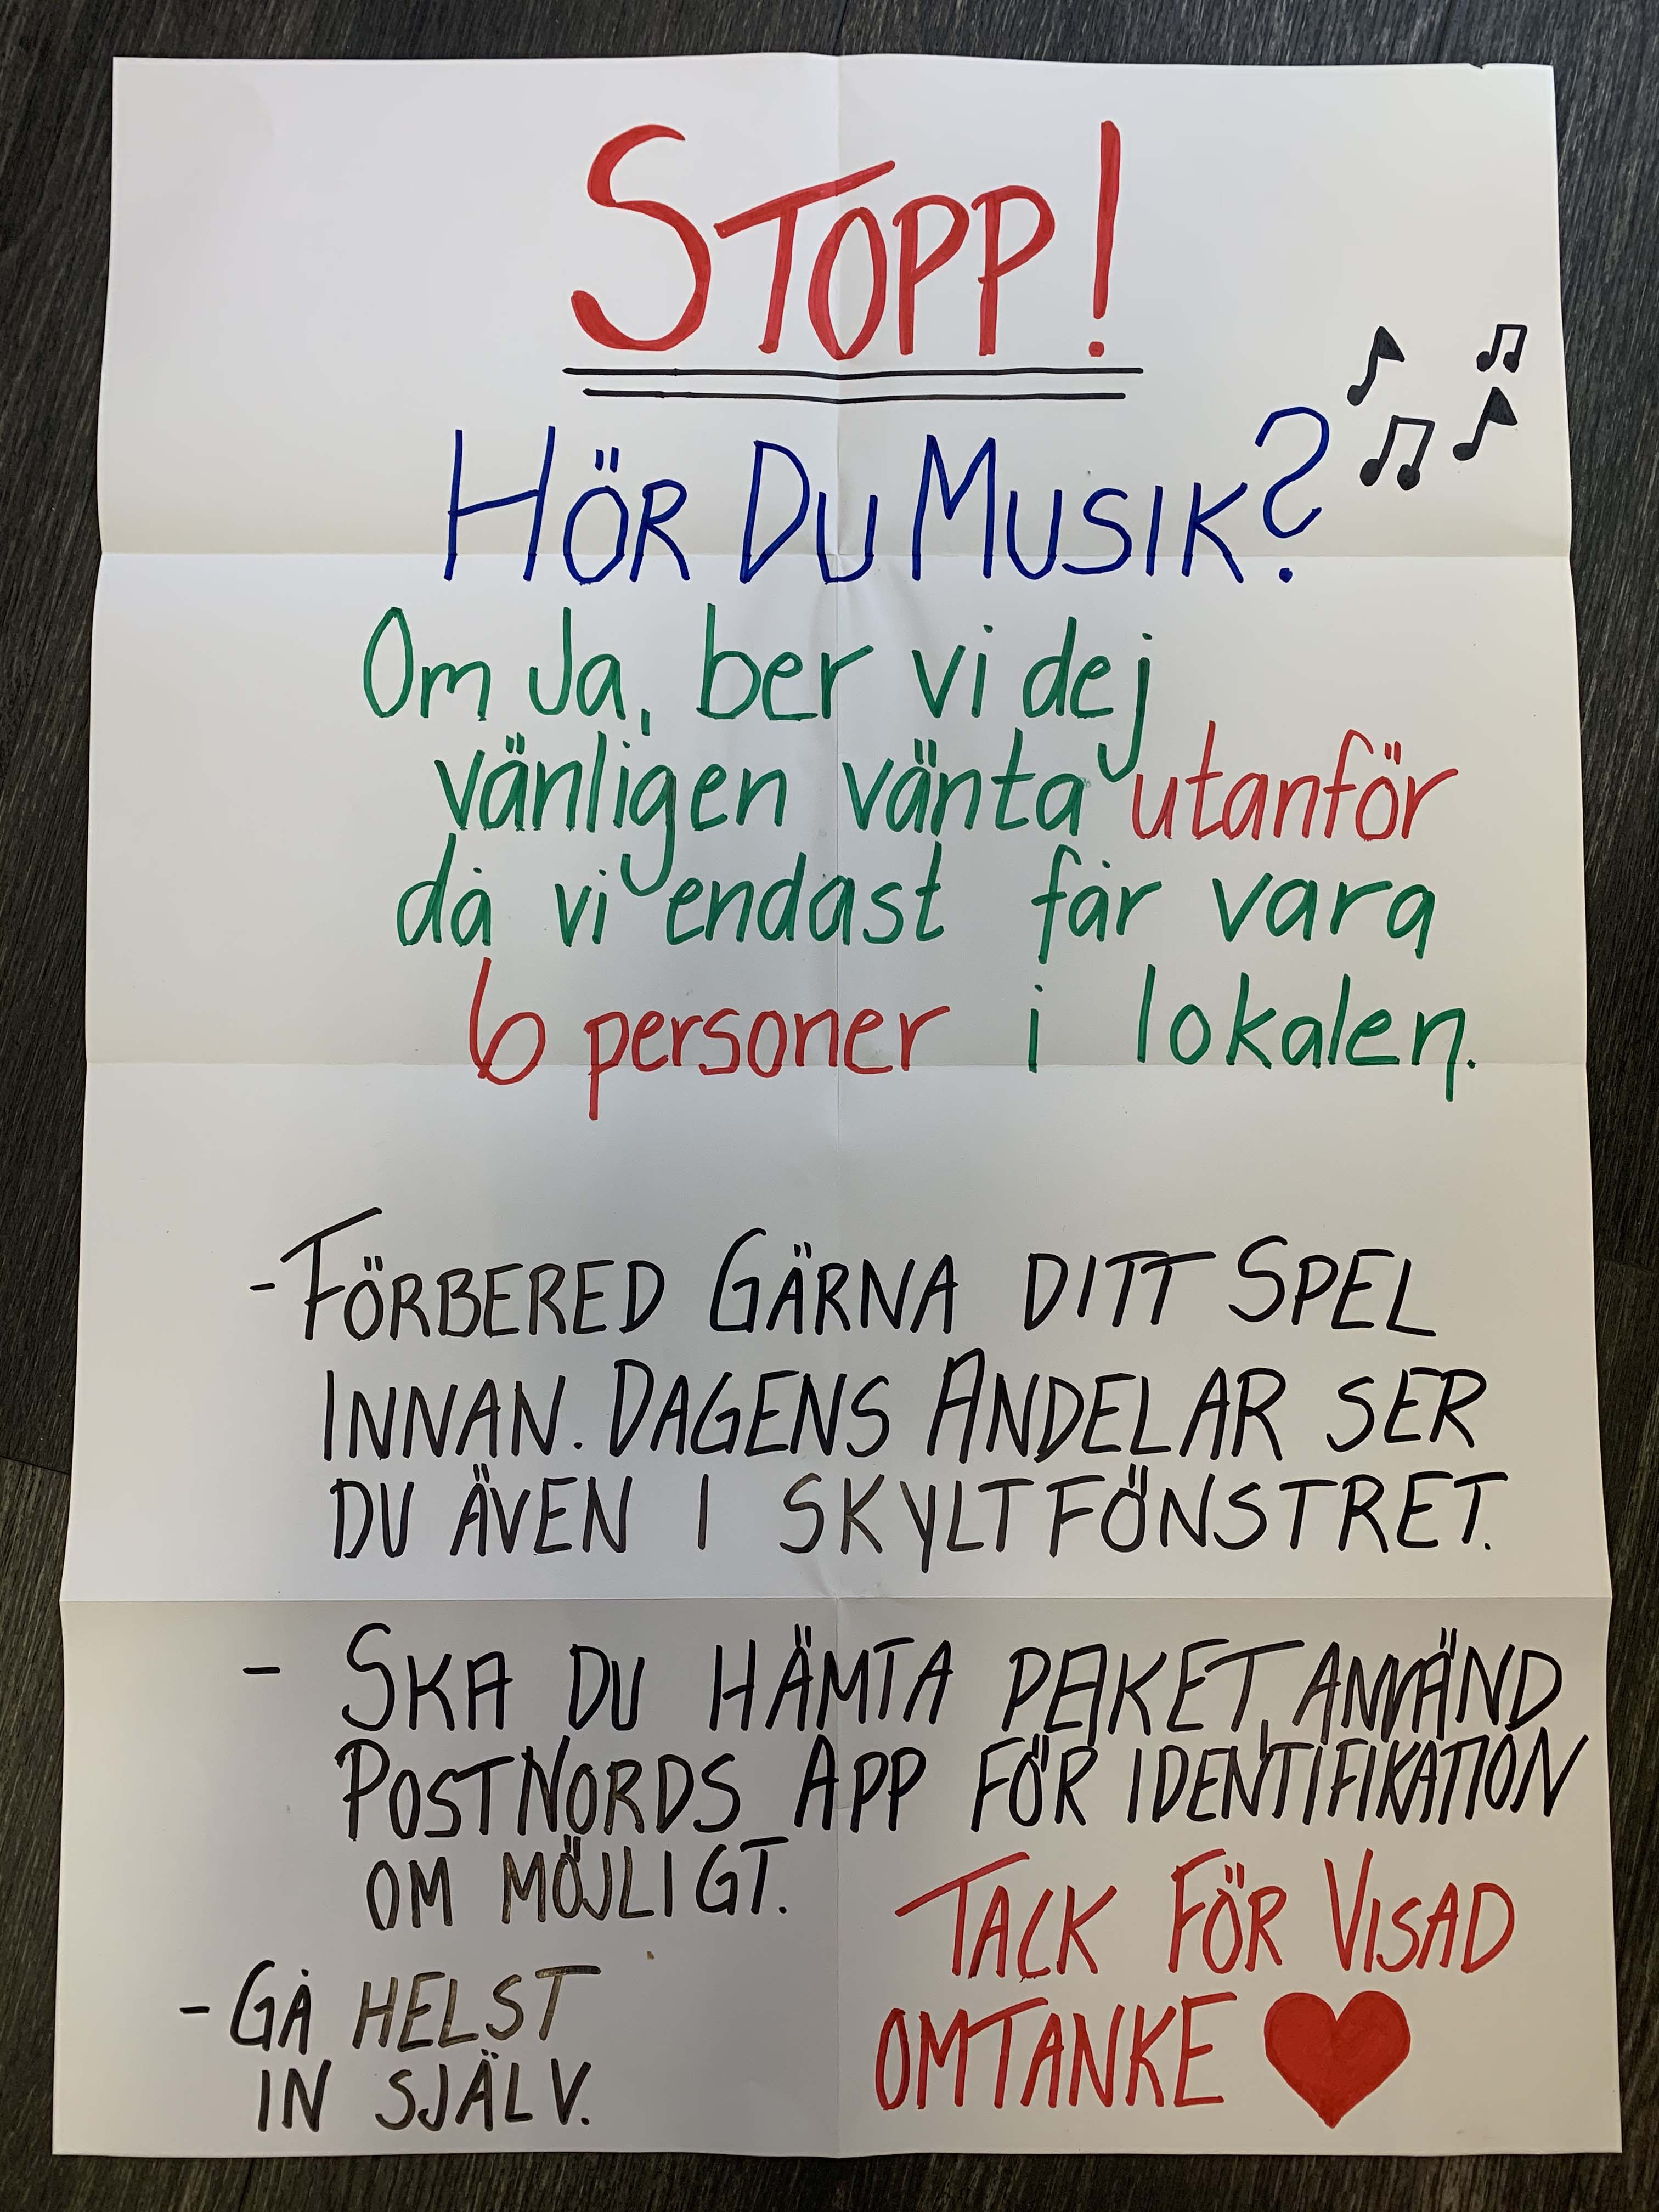 STOPP!
HÖR DU MUSIK?
Om Ja, ber vi dej
vänligen vänta utanför
då vi endast får vara
6 personer i lokalen.
- FÖRBERED GÄRNA DITT SPEL
INNAN. DAGENS ANDELAR SER
DU ÄVEN I SKYLTFÖNSTRET.
- SKA DU HÄMTA PAKET, ANVÄND
POSTNORDS APP FÖR IDENTIFIKATION
OM MÖJLIGT.
- GÅ HELST
IN SJÄLV.
TACK FÖR VISAD
OMTANKE